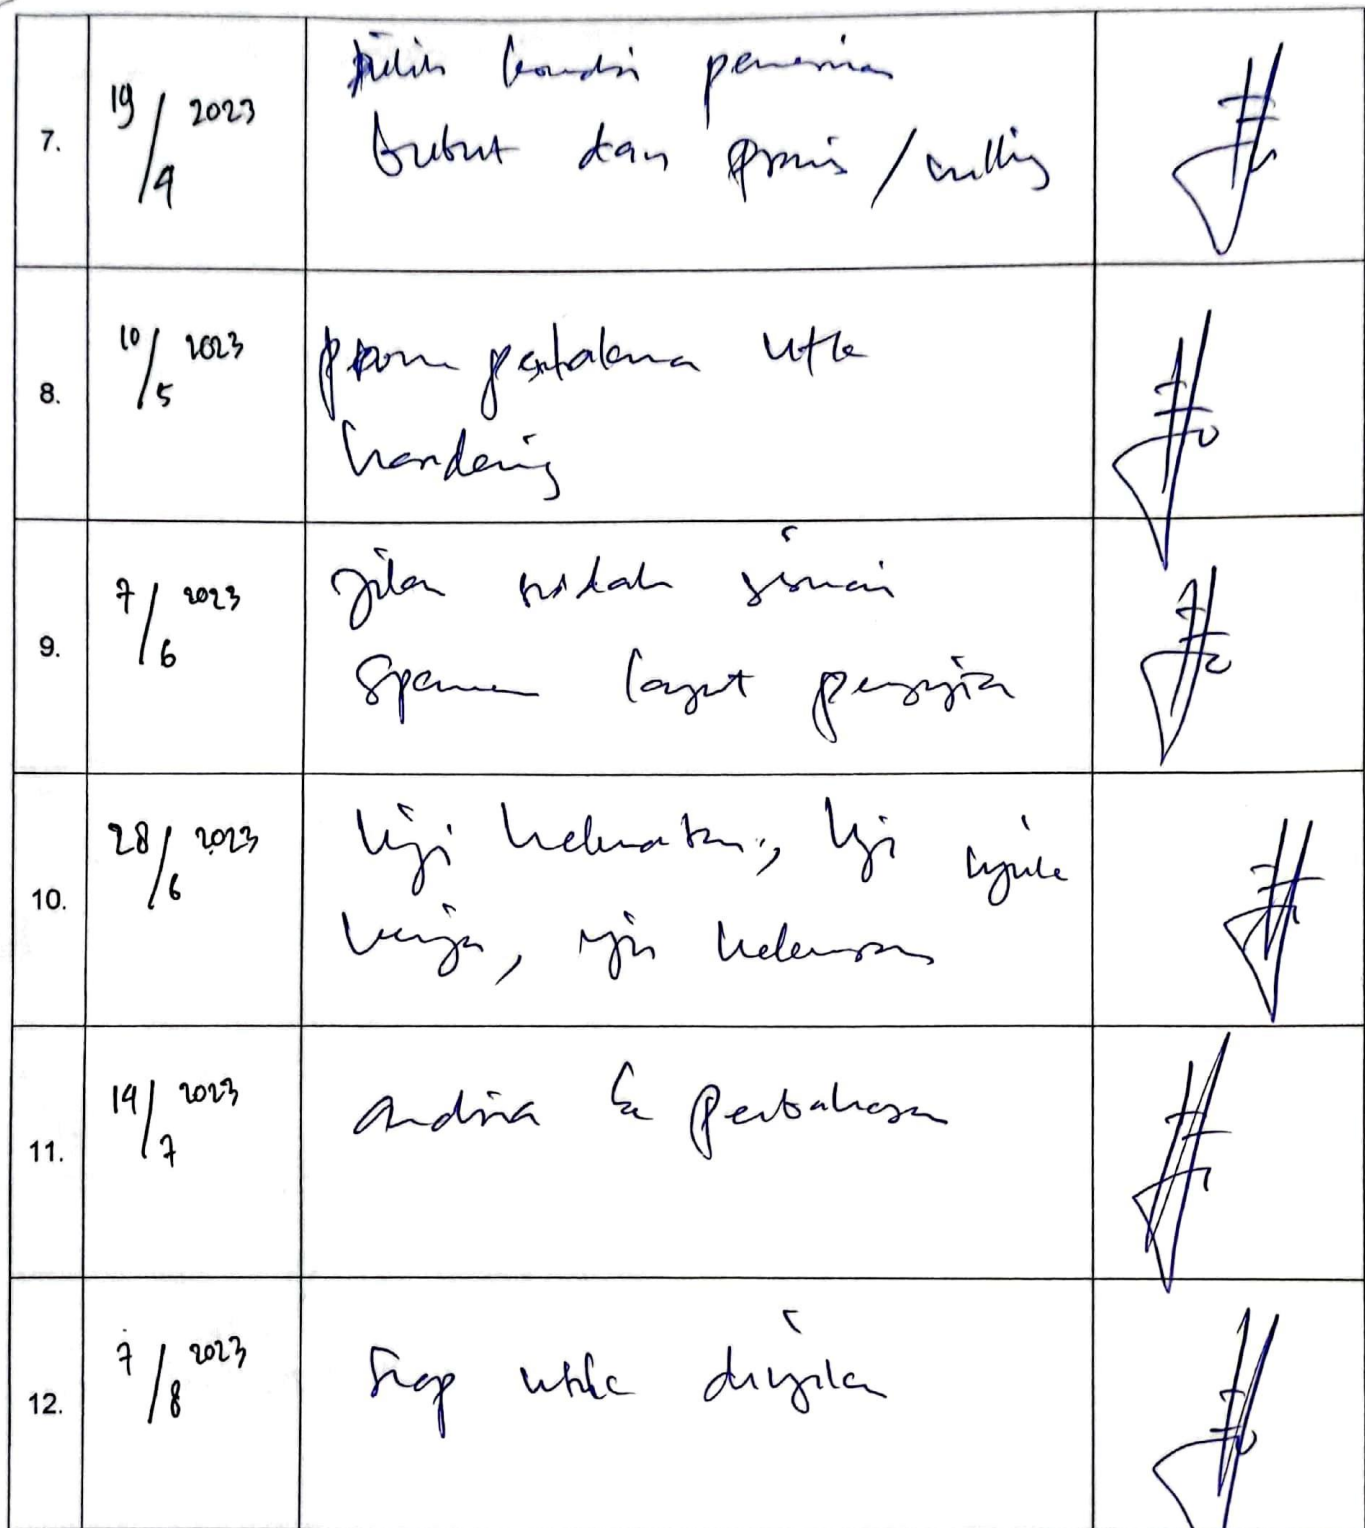 7.
19/4 2023
pilih kondisi pemesinan
bubut dan frais / milling
8.
10/5 2023
utk
hardening
9.
7/6 2023
jika sudah sesuai
lanjut pengujian
10.
28/6 2023
Uji kekuatan, Uji unjuk
kerja, uji kekerasan
11.
14/7 2023
Analisa & Pembahasan
12.
7/8 2023
Siap utk diujikan